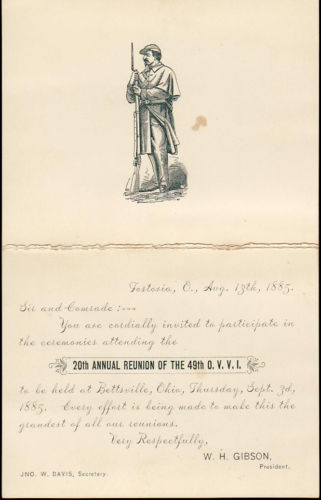 Fostoria, O., Aug. 13th, 1885.
Sir and Comrade:---
You are cordially invited to participate in
the ceremonies attending the
20th ANNUAL REUNION OF THE 49th O. V. V. I.
to be held at Bettsville, Ohio, Thursday, Sept. 3d,
1885. Every effort is being made to make this the
grandest of all our reunions.
Very Respectfully,
W. H. GIBSON,
President.
JNO. W. DAVIS, Secretary.